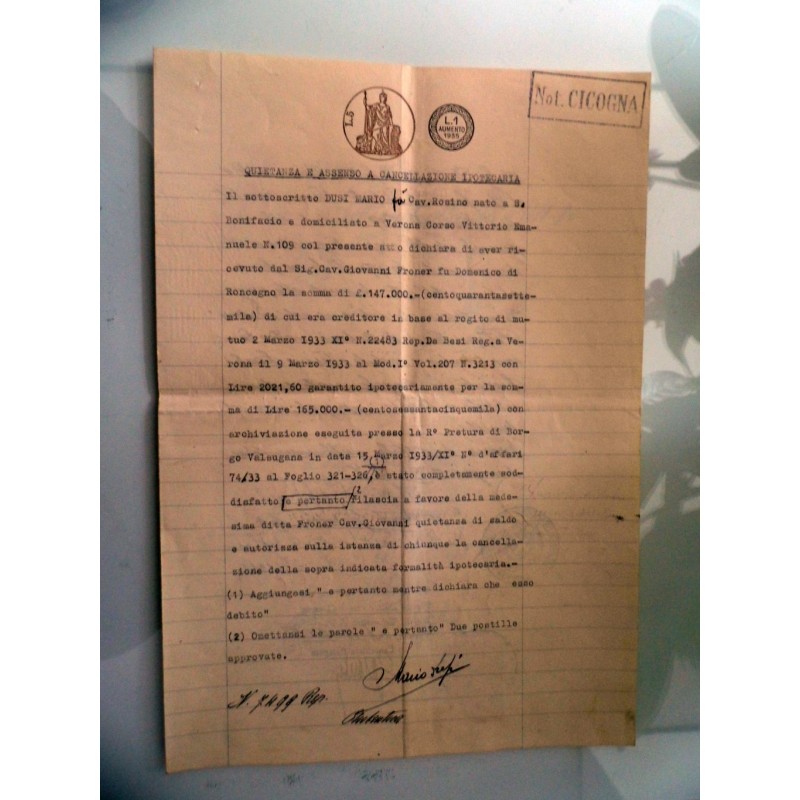 Not. CICOGNA
L.5
L.1
AUMENTO
1935
QUIETANZA E ASSENSO A CANCELLAZIONE IPOTECARIA
Il sottoscritto DUSI MARIO fu Cav.Rosino nato a S.
Bonifacio e domiciliato a Verona Corso Vittorio Ema-
nuele N.109 col presente atto dichiara di aver ri-
cevuto dal Sig.Cav.Giovanni Froner fu Domenico di
Roncegno la somma di £.147.000.-(centoquarantasette-
mila) di cui era creditore in base al rogito di mu-
tuo 2 Marzo 1933 XI° N.22483 Rep.Da Besi Reg.a Ve-
rona il 9 Marzo 1933 al Mod.I° Vol.207 N.3213 con
Lire 2021,60 garantito ipotecariamente per la som-
ma di Lire 165.000.- (centosessantacinquemila) con
archiviazione eseguita presso la R° Pretura di Bor-
go Valsugana in data 15 Marzo 1933/XI° N° d'affari
74/33 al Foglio 321-326, è stato completamente sod-
disfatto e pertanto rilascia a favore della mede-
sima ditta Froner Cav.Giovanni quietanza di saldo
e autorizza sulla istanza di chiunque la cancella-
zione della sopra indicata formalità ipotecaria.-
(1) Aggiungesi " e pertanto mentre dichiara che esso
debito"
(2) Omettansi le parole " e pertanto" Due postille
approvate.
Mario Dusi
N. 7499 Rep.